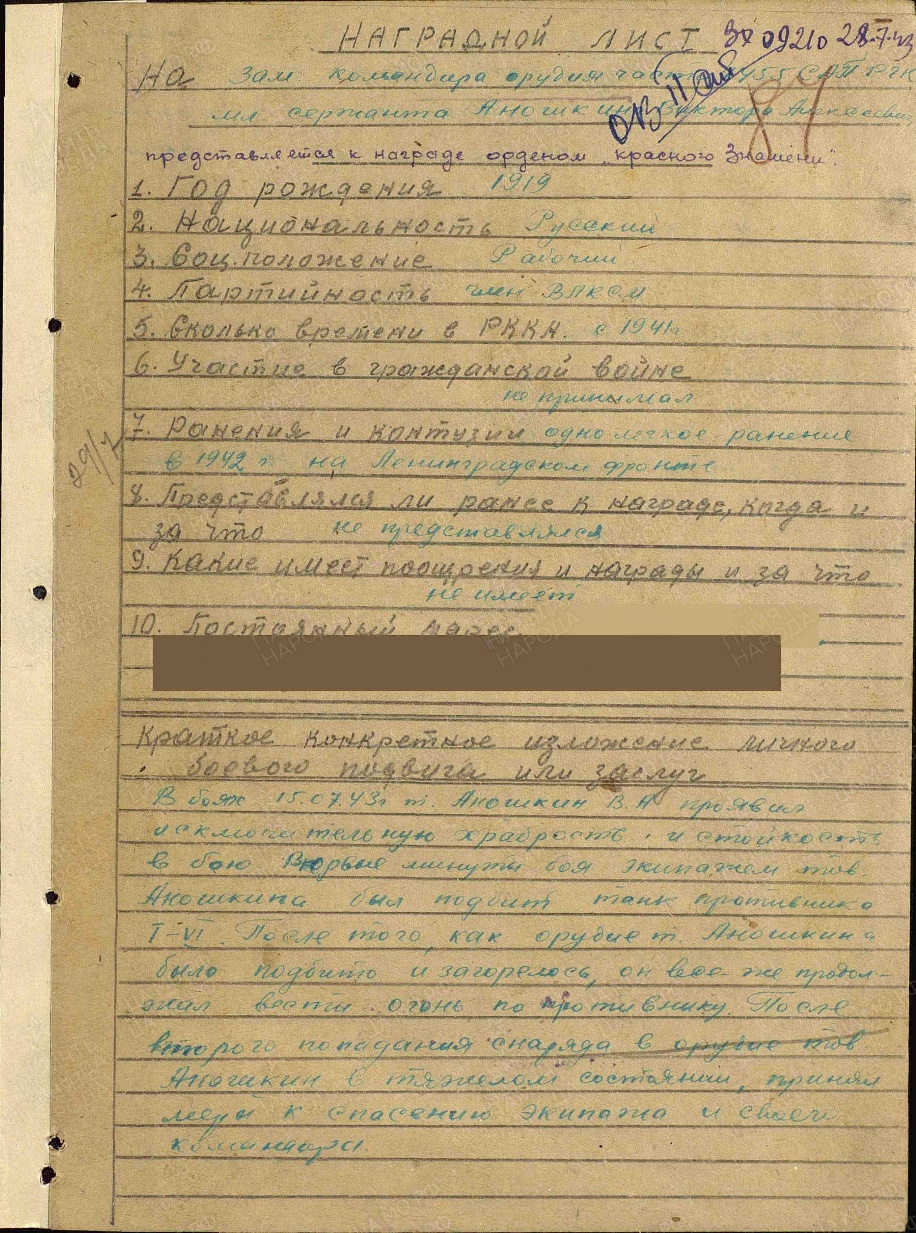 НАГРАДНОЙ ЛИСТ
0921
28.7.43
На Зам. командира орудия 1455 САП РГК
мл. сержанта Аношкина Виктора
представляется к награде орденом „красного Знамени".
1. Год рождения 1919
2. Национальность Русский
3. Соц.положение Рабочий
4. Партийность член ВЛКСМ
5. Сколько времени в РККА. с 1941г
6. Участие в гражданской войне
не принимал
7. Ранения и контузии одно легкое ранение
в 1942 г. на Ленинградском фронте
29/7
8. Представлялся ли ранее к награде, когда и
за что не представлялся
9. Какие имеет поощрения и награды и за что
не имеет
10. Постоянный адрес
Краткое конкретное изложение личного
боевого подвига или заслуг
В боях 15.07.43г т. Аношкин В.А проявил
исключительную храбрость и стойкость
в бою Впервые минуты боя экипажем тов.
Аношкина был подбит танк противника
Т-VI. После того, как орудие т. Аношкина
было подбито и загорелось, он все-же продол-
жал вести огонь по противнику. После
второго попадания снаряда в орудие тов
Аношкин в тяжелом состоянии, принял
меры к спасению экипажа и своего
командира.